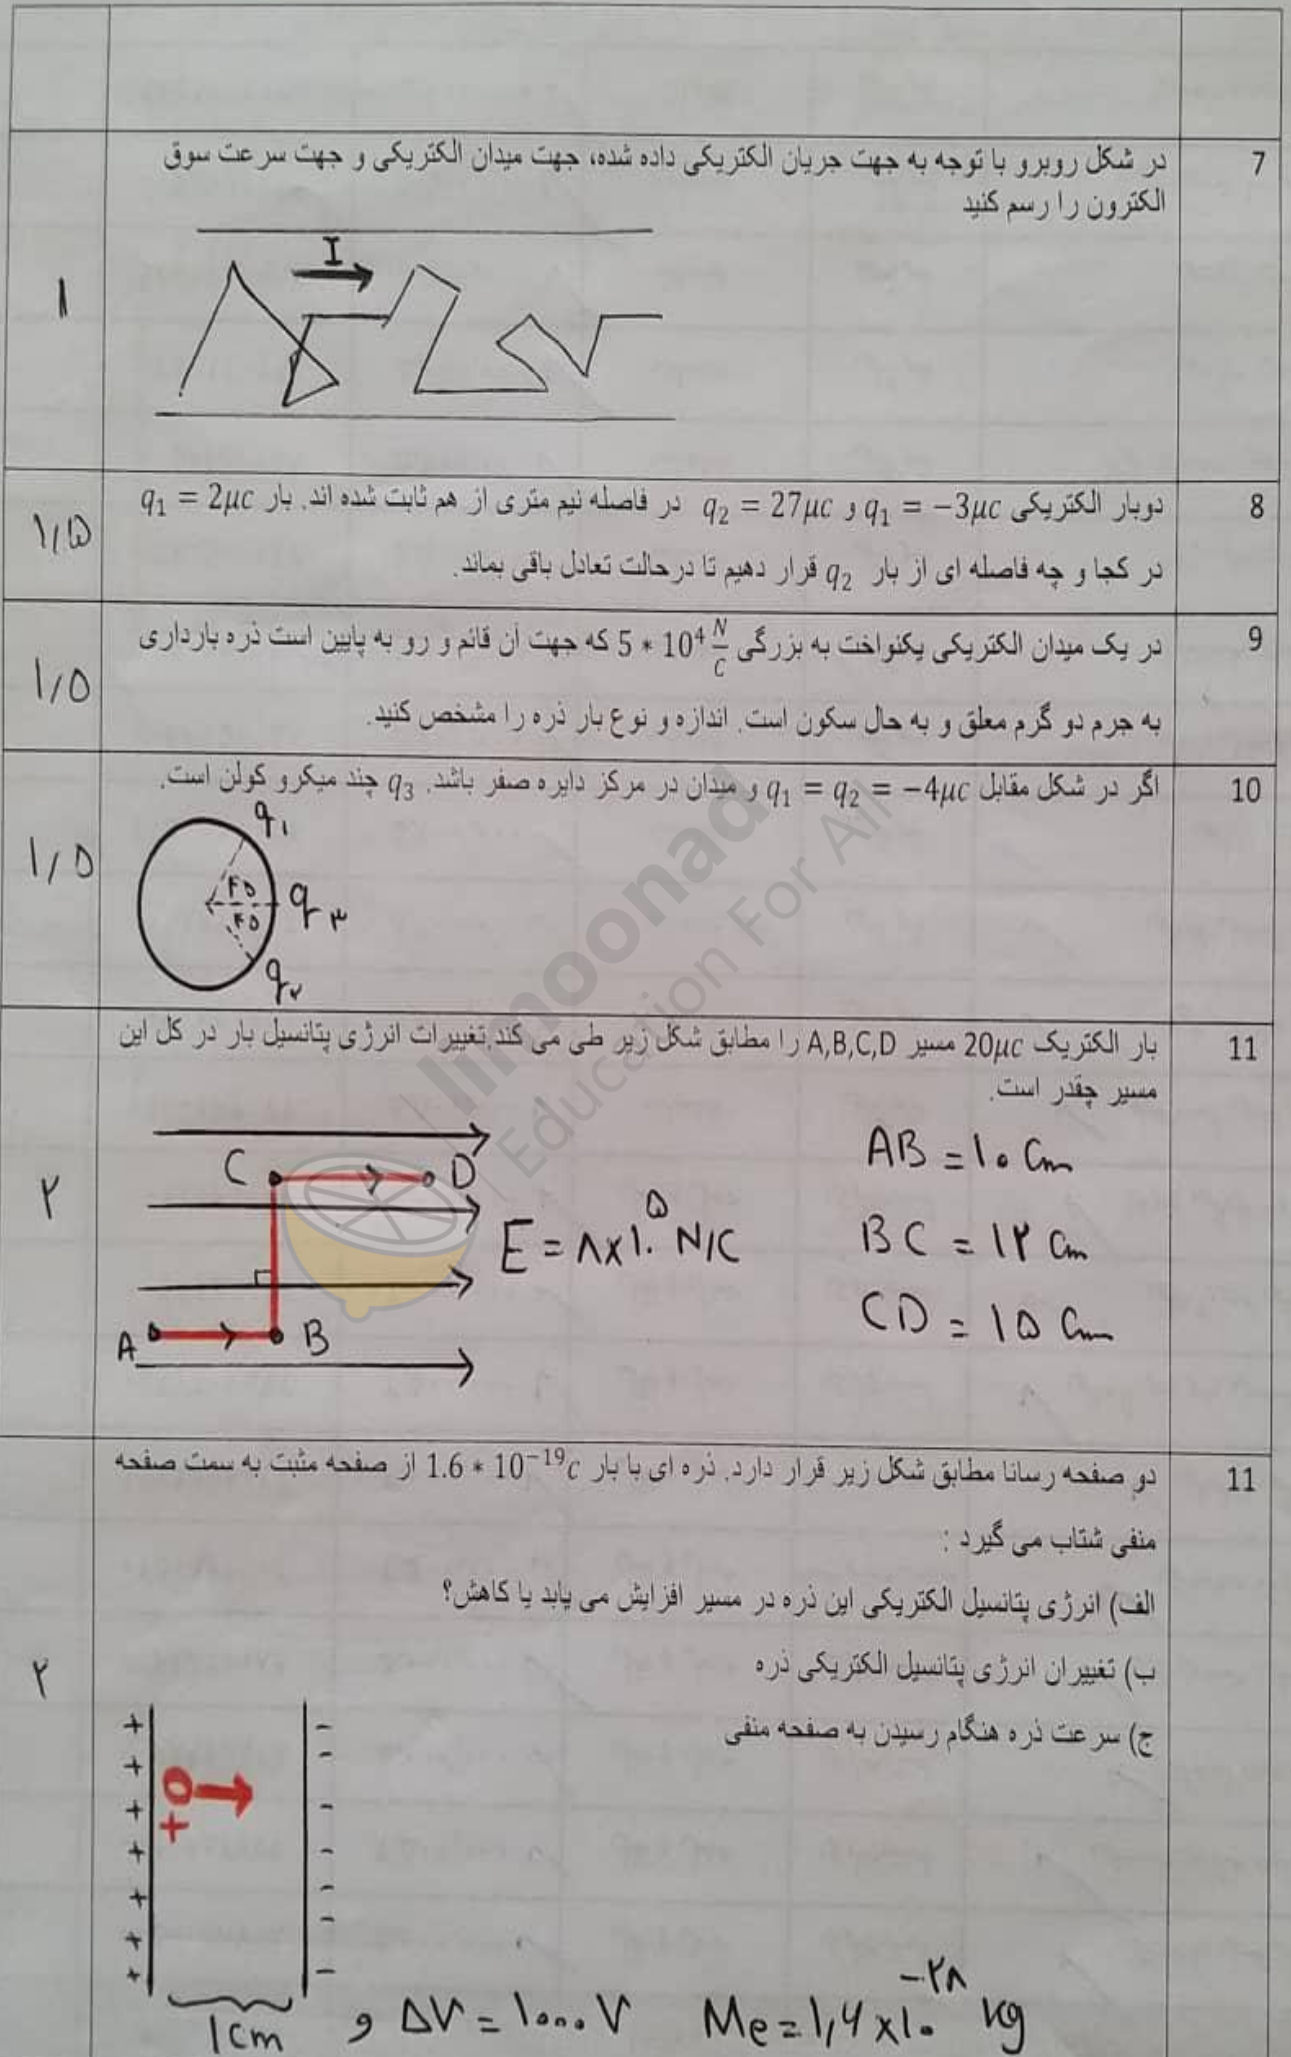 7
در شکل روبرو با توجه به جهت جریان الکتریکی داده شده، جهت میدان الکتریکی و جهت سرعت سوق
الکترون را رسم کنید
I
۱
8
دوبار الکتریکی q₁ = −3μc و q₂ = 27μc در فاصله نیم متری از هم ثابت شده اند. بار q₁ = 2μc
در کجا و چه فاصله ای از بار q₂ قرار دهیم تا درحالت تعادل باقی بماند.
۱/۵
9
در یک میدان الکتریکی یکنواخت به بزرگی 5 * 10⁴ N/C که جهت آن قائم و رو به پایین است ذره بارداری
به جرم دو گرم معلق و به حال سکون است. اندازه و نوع بار ذره را مشخص کنید.
۱/۵
10
اگر در شکل مقابل q₁ = q₂ = −4μc و میدان در مرکز دایره صفر باشد. q₃ چند میکرو کولن است.
q۱
۴۵
q۳
۴۵
q۲
۱/۵
11
بار الکتریک 20μc مسیر A,B,C,D را مطابق شکل زیر طی می کند,تغییرات انرژی پتانسیل بار در کل این
مسیر چقدر است.
AB = ۱۰ Cm
C D
E = ۸×۱۰⁵ N/C
BC = ۱۲ Cm
CD = ۱۵ Cm
A B
۲
limoonad
Education For All
11
دو صفحه رسانا مطابق شکل زیر قرار دارد. ذره ای با بار 1.6 * 10⁻¹⁹c از صفحه مثبت به سمت صفحه
منفی شتاب می گیرد :
الف) انرژی پتانسیل الکتریکی این ذره در مسیر افزایش می یابد یا کاهش؟
ب) تغییران انرژی پتانسیل الکتریکی ذره
ج) سرعت ذره هنگام رسیدن به صفحه منفی
۲
1cm و ΔV = ۱۰۰۰۰ V Me = ۱,۶×۱۰⁻²⁸ kg